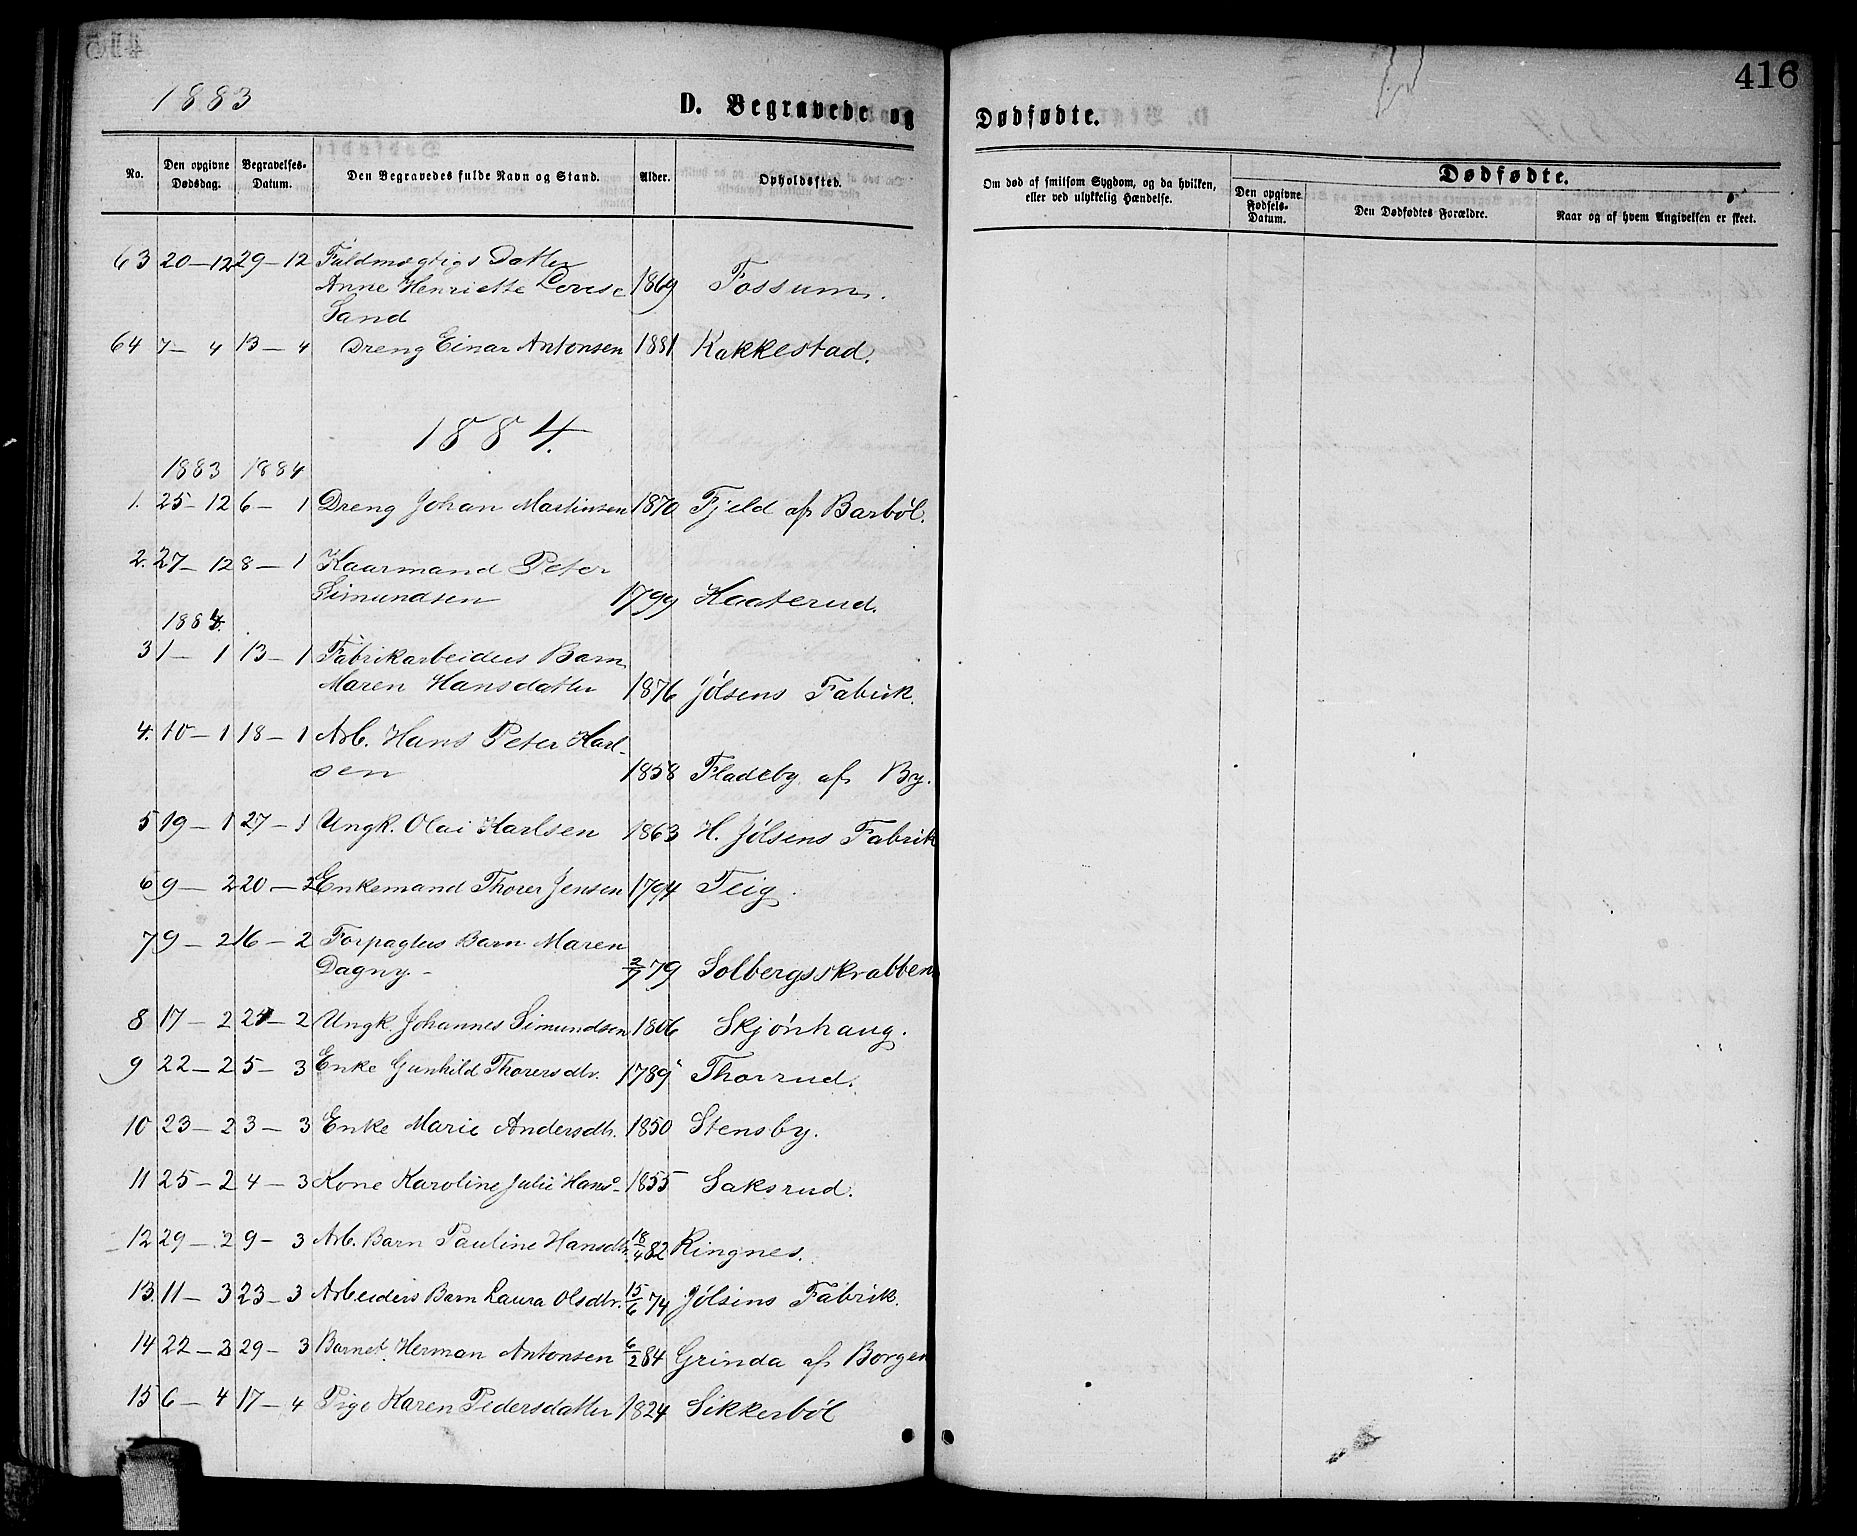 416
1883
D. Begravede og
Dødfødte.
No.
Den opgivne Dødsdag.
Begravelses-Datum.
Den Begravedes fulde Navn og Stand.
Alder.
Opholdssted.
Om død af smitsom Sygdom, og da hvilken, eller ved ulykkelig Hændelse.
Dødfødte.
Den opgivne Fødsels-Datum.
Den Dødfødtes Forældre.
Naar og af hvem Angivelsen er skeet.
63 20-12 29-12 Fuldmægtigs Datter
Anne Henriette Lovise 1869 Fossum.
Sand
64 7-4 13-4 Dreng Einar Antonsen 1881 Kakkestad.
1884.
1883 1884
1. 25-12 6-1 Dreng Johan Martinsen 1870 Fjeld af Barbøl.
2. 27-12 8-1 Kaarmand Peter
Simundsen 1799 Kaaterud.
1884.
3 1-1 13-1 Fabrikarbeiders Barn
Maren Hansdatter 1876 Jølsens Fabrik.
4. 10-1 18-1 Arb. Hans Peter Karl-
sen 1858 Fladeby af By.
5 19-1 27-1 Ungk. Olai Karlsen 1863 H. Jølsens Fabrik
6 9-2 20-2 Enkemand Thorer Jensen 1794 Teig.
7 9-2 16-2 Forpagters Barn Maren
Dagny.- 2/7 79 Solbergsskrabben
8 17-2 24-2 Ungk. Johannes Simundsen 1806 Skjønhaug.
9 22-2 5-3 Enke Gunhild Thorersdtr. 1789 Thorrud.
10 23-2 3-3 Enke Marie Andersdtr. 1850 Stensby.
11 25-2 4-3 Kone Karoline Julie Hans- 1855 Saksrud.
12 29-2 9-3 Arb. Barn Pauline Hansdtr. 18/4 82 Ringnes.
13. 11-3 23-3 Arbeiders Barn Laura Olsdtr. 15/6 74 Jølsens Fabrik.
14 22-3 29-3 Barnet Herman Antonsen 6/2 84 Grinda af Borgen
15 6-4 17-4 Pige Karen Pedersdatter 1824 Sikkerbøl